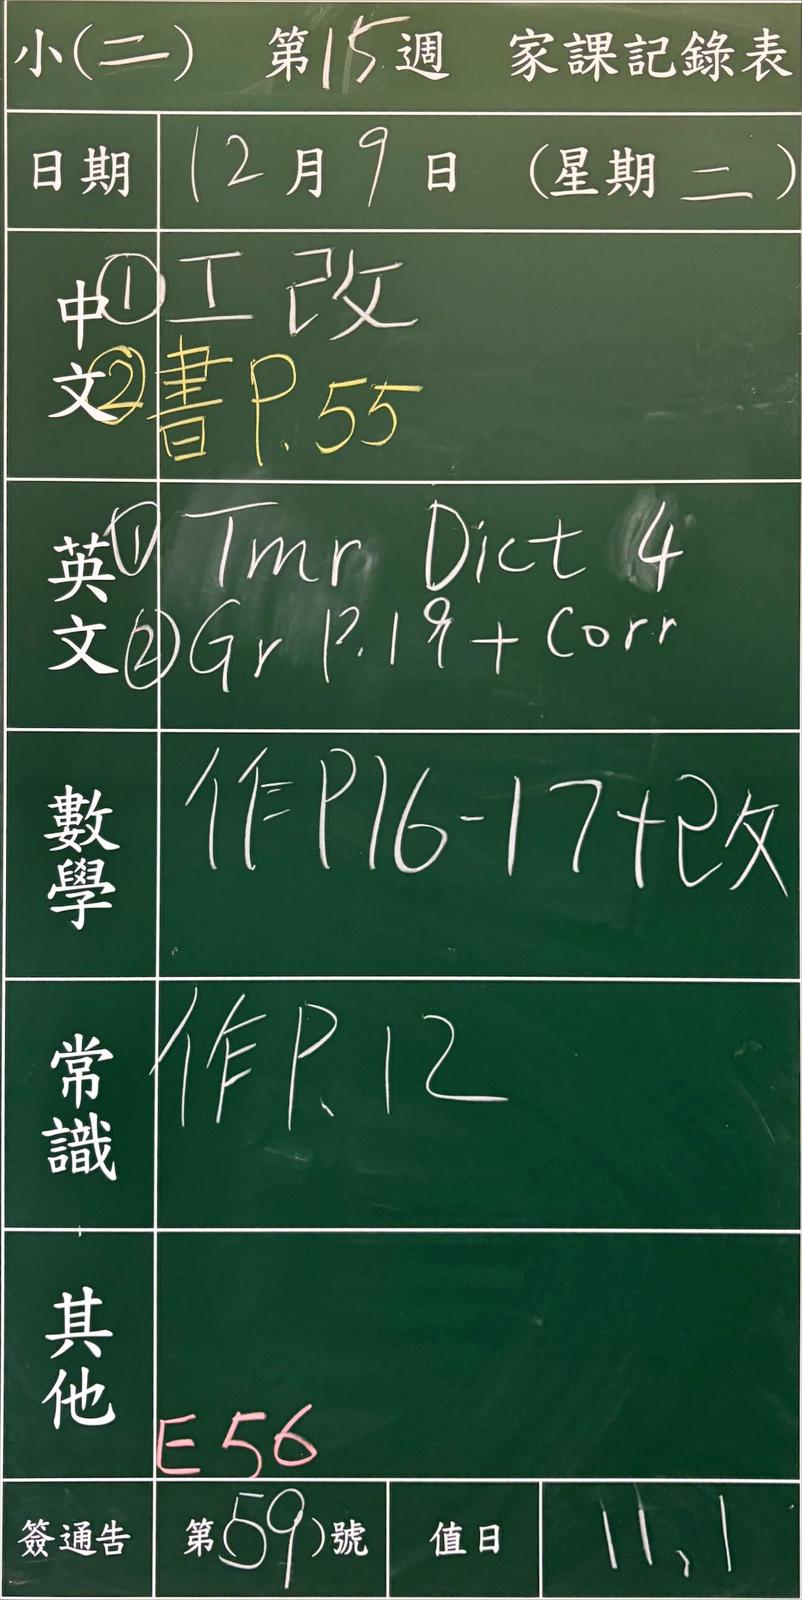 小(二) 第15週 家課記錄表
日期 12月9日 (星期二)
中文 ①工改
②書P.55
英文 ① Tmr Dict 4
② Gr P.19 + Corr
數學 作P16-17+改
常識 作P.12
其他
E56
簽通告 第(59)號 值日 11、1